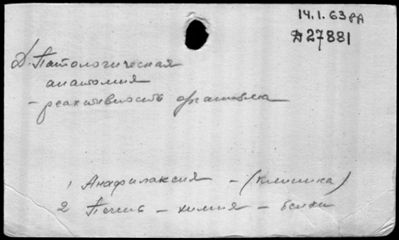 14.1.63 РА
Д 27881
Д. Патологическая
анатомия
- реактивность организма
1 Анафилаксия - (клиника)
2 Печень - химия - белки